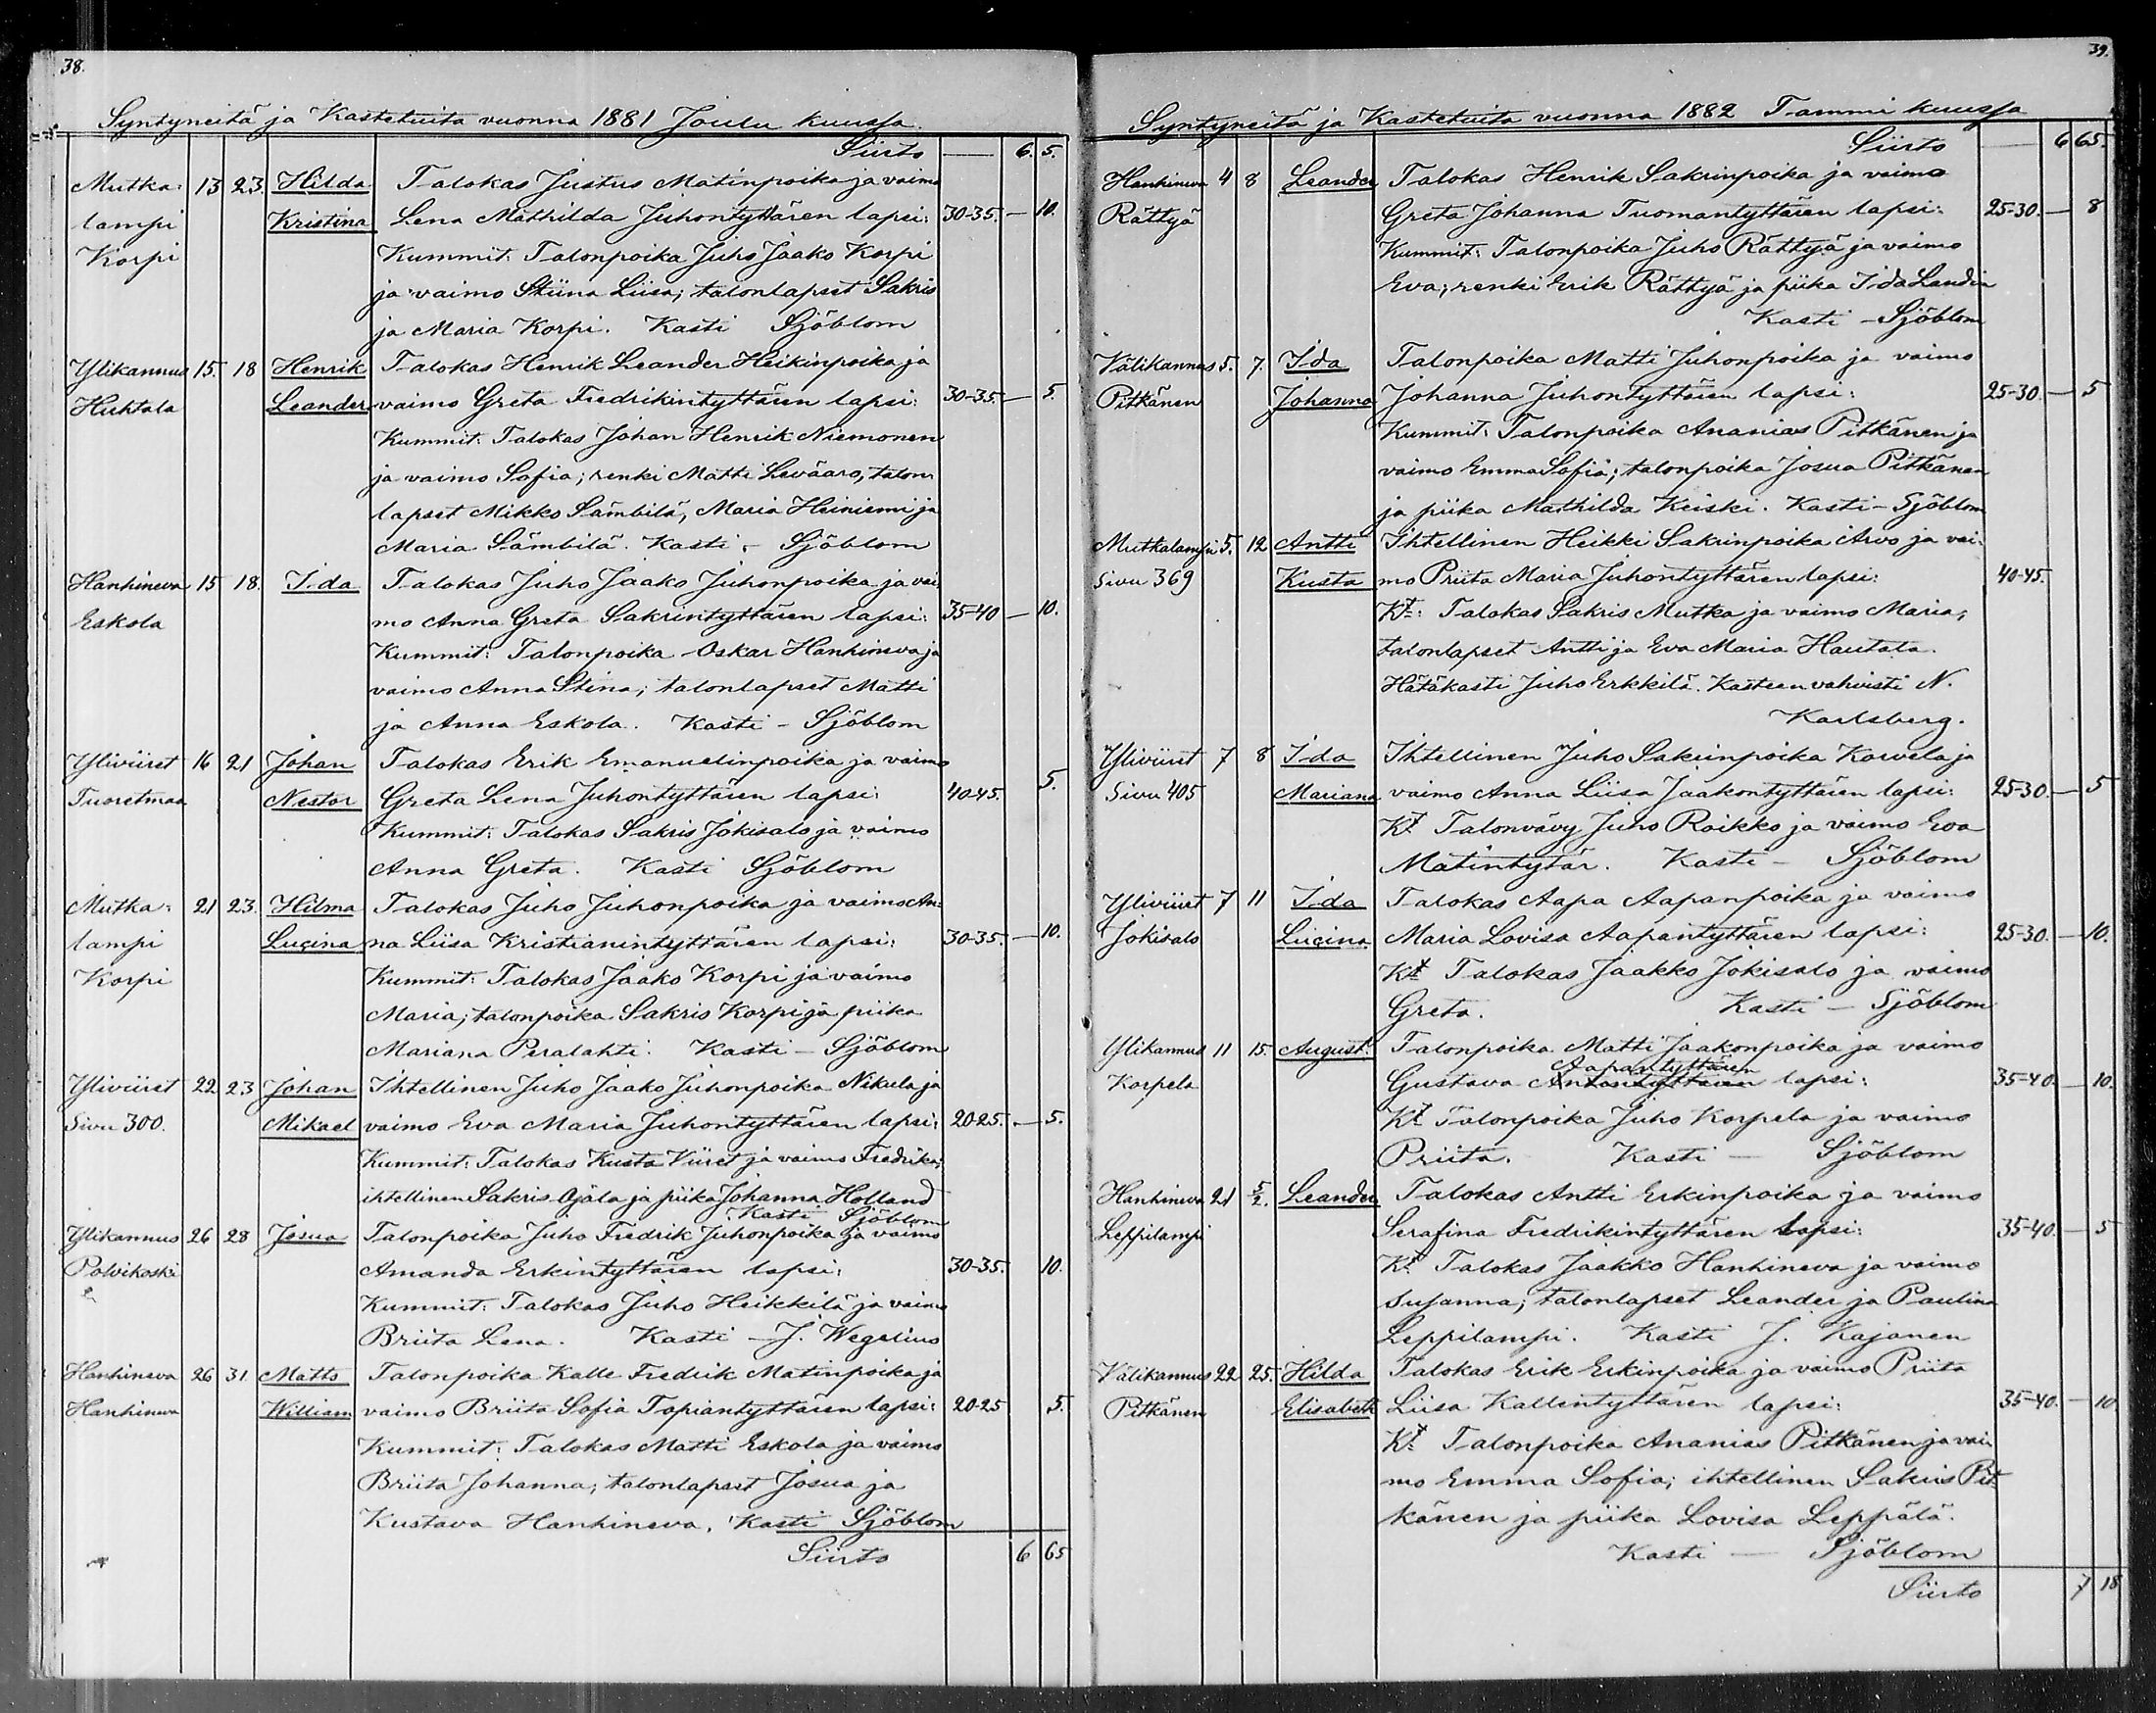 38.
Syntyneitä ja Kastetuita vuonna 1881 Joulu kuussa.
Siirto — 6. 5.
Mutka= 13 23. Hilda Talokas Justus Matinpoika ja vaimo
lampi Kristina Lena Mathilda Juhontyttären lapsi: 30-35. — 10.
Korpi Kummit: Talonpoika Juho Jaako Korpi
ja vaimo Stiina Liisa; talonlapset Sakris
ja Maria Korpi. Kasti Sjöblom
Ylikannus 15. 18 Henrik Talokas Henrik Leander Heikinpoika ja
Huhtala Leander vaimo Greta Fredrikintyttären lapsi: 30-35. — 5.
Kummit: Talokas Johan Henrik Niemonen
ja vaimo Sofia; renki Matti Leväaro, talon
lapset Mikko Sämbilä, Maria Heiniemi ja
Maria Sämbilä. Kasti - Sjöblom
Hanhineva 15 18. Ida Talokas Juho Jaako Juhonpoika ja vai=
Eskola mo Anna Greta Sakrintyttären lapsi: 35-40 — 10.
Kummit: Talonpoika Oskar Hanhineva ja
vaimo Anna Stina; talonlapset Matti
ja Anna Eskola. Kasti - Sjöblom
Yliviiret 16 21 Johan Talokas Erik Emanuelinpoika ja vaimo
Tuoretmaa Nestor Greta Lena Juhontyttären lapsi: 40-45. 5.
Kummit: Talokas Sakris Jokisalo ja vaimo
Anna Greta. Kasti Sjöblom
Mutka= 21 23. Hilma Talokas Juho Juhonpoika ja vaimo An=
lampi Lucina na Liisa Kristianintyttären lapsi: 30-35. — 10.
Korpi Kummit: Talokas Jaako Korpi ja vaimo
Maria; talonpoika Sakris Korpi ja piika
Mariana Peralahti. Kasti - Sjöblom
Yliviiret 22 23 Johan Ihtellinen Juho Jaako Juhonpoika Nikula ja
Sivu 300. Mikael vaimo Eva Maria Juhontyttären lapsi: 20-25. — 5.
Kummit: Talokas Kusta Viiret ja vaimo Fredrika;
ihtellinen Sakris Ojala ja piika Johanna Holland
Kasti Sjöblom
Ylikannus 26 28 Josua Talonpoika Juho Fredrik Juhonpoika ja vaimo
Polvikoski Amanda Erkintyttären lapsi: 30-35. 10.
Kummit: Talokas Juho Heikkilä ja vaimo
Briita Lena. Kasti - J. Wegelius
Hanhineva 26 31 Matts Talonpoika Kalle Fredrik Matinpoika ja
Hanhineva William vaimo Briita Sofia Topiantyttären lapsi: 20-25 5.
Kummit: Talokas Matti Eskola ja vaimo
Briita Johanna; talonlapset Josua ja
Kustava Hanhineva. Kasti Sjöblom
Siirto 6 65
39.
Syntyneitä ja Kastetuita vuonna 1882 Tammi kuussa
Siirto — 6 65.
Hanhineva 4 8 Leander Talokas Henrik Sakrinpoika ja vaimo
Rättyä Greta Johanna Tuomantyttären lapsi: 25-30. — 8
Kummit: Talonpoika Juho Rättyä ja vaimo
Eva; renki Erik Rättyä ja piika Ida Landin
Kasti - Sjöblom
Välikannus 5. 7. Ida Talonpoika Matti Juhonpoika ja vaimo
Pitkänen Johanna Johanna Juhontyttären lapsi: 25-30. — 5
Kummit: Talonpoika Ananias Pitkänen ja
vaimo Emma Sofia; talonpoika Josua Pitkänen
ja piika Mathilda Keiski. Kasti - Sjöblom
Mutkalampi 5. 12 Antti Ihtellinen Heikki Sakrinpoika Arvo ja vai=
Sivu 369 Kusta mo Priita Maria Juhontyttären lapsi: 40-45.
Kt: Talokas Sakris Mutka ja vaimo Maria;
talonlapset Antti ja Eva Maria Hautala.
Hätäkasti Juho Erkkilä. Kasteen vahvisti N.
Karlsberg.
Yliviiret 7 8 Ida Ihtellinen Juho Sakrinpoika Korvela ja
Sivu 405 Mariana vaimo Anna Liisa Jaakontyttären lapsi: 25-30. — 5
Kt Talonvävy Juho Roikko ja vaimo Eva
Matintytär. Kasti - Sjöblom
Yliviiret 7 11 Ida Talokas Aapa Aapanpoika ja vaimo
Jokisalo Lucina Maria Lovisa Aapantyttären lapsi: 25-30. — 10.
Kt Talokas Jaakko Jokisalo ja vaimo
Greta. Kasti - Sjöblom
Ylikannus 11 15. August. Talonpoika Matti Jaakonpoika ja vaimo
Aapantyttären
Korpela Gustava Antontyttären lapsi: 35-40. — 10.
Kt Talonpoika Juho Korpela ja vaimo
Priita. Kasti — Sjöblom
Hanhineva 21 5/2. Leander Talokas Antti Erkinpoika ja vaimo
Leppilampi Serafina Fredrikintyttären lapsi: 35-40. — 5
Kt Talokas Jaakko Hanhineva ja vaimo
Susanna; talonlapset Leander ja Paulina
Leppilampi. Kasti J. Kajanen
Välikannus 22 25. Hilda Talokas Erik Erkinpoika ja vaimo Priita
Pitkänen Elisabeth Liisa Kallentyttären lapsi: 35-40. — 10
Kt Talonpoika Ananias Pitkänen ja vai=
mo Emma Sofia; ihtellinen Sakris Pit=
känen ja piika Lovisa Leppälä.
Kasti — Sjöblom
Siirto 7 18